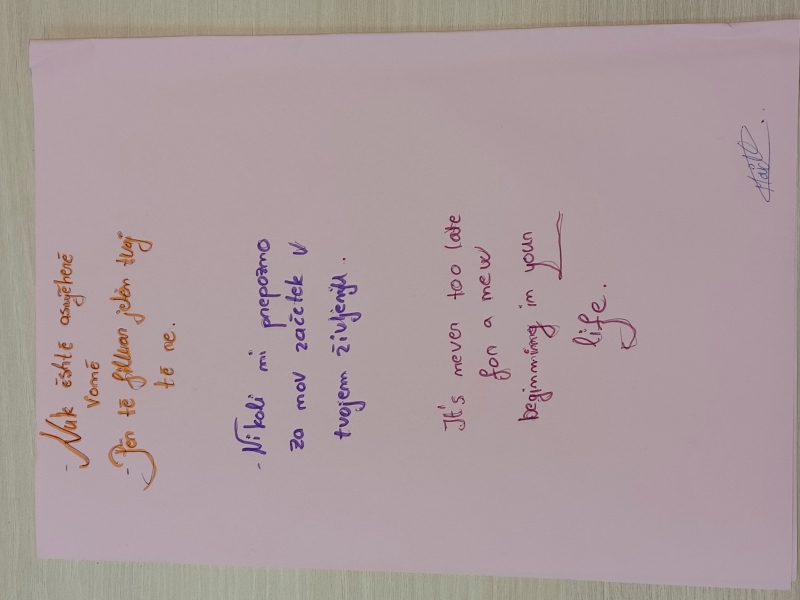 - Nuk është asnjëherë
vonë
- Për të filluar jetën tuaj
të re.
- Nikoli ni prepozno
za nov začetek v
tvojem življenju.
It's never too late
for a new
beginning in your
life.